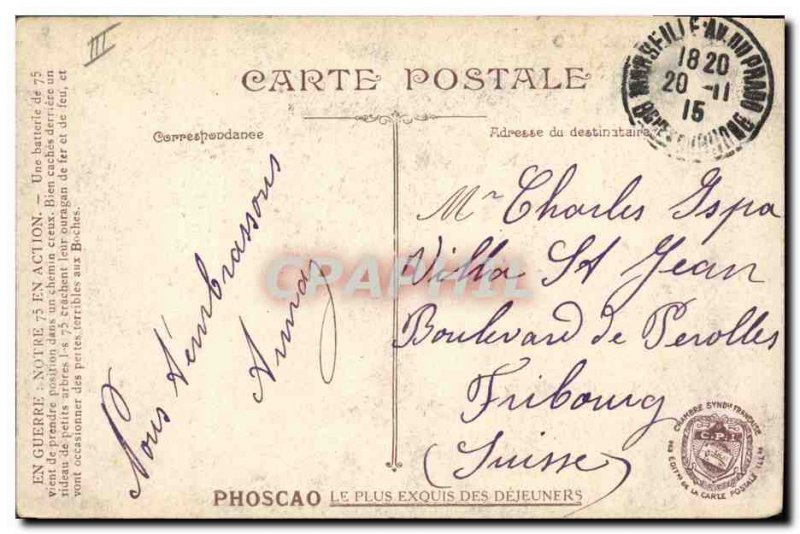 III
MARSEILLE AV. DU PRADO
18 20
20 -11
15
BCHES DU RHONE
CARTE POSTALE
Correspondance
Adresse du destinataire
EN GUERRE : NOTRE 75 EN ACTION. — Une batterie de 75
vient de prendre position dans un chemin creux. Bien cachés derrière un
rideau de petits arbres les 75 crachent leur ouragan de fer et de feu, et
vont occasionner des pertes terribles aux Boches.
Nous t'embrassons
Mr Charles Ispa
Villa St Jean
Boulevard de Perolles
Fribourg
(Suisse)
CPAPHIL
CHAMBRE SYNDLE FRANÇAISE
C.P.I.
DES EDITRS DE LA CARTE POSTALE
PHOSCAO LE PLUS EXQUIS DES DÉJEUNERS